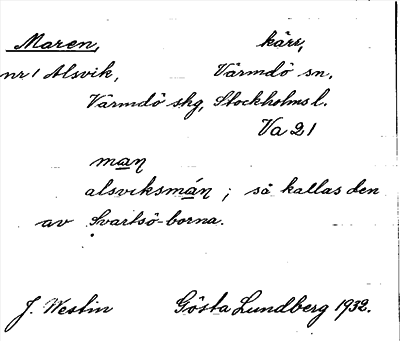 Maren, kärr,
nr 1 Alsvik, Värmdö sn,
Värmdö skg, Stockholms l.
Va 21
maŋ
alsviksmáŋ ; så kallas den
av Svartsö-borna.
J. Westin Gösta Lundberg 1932.